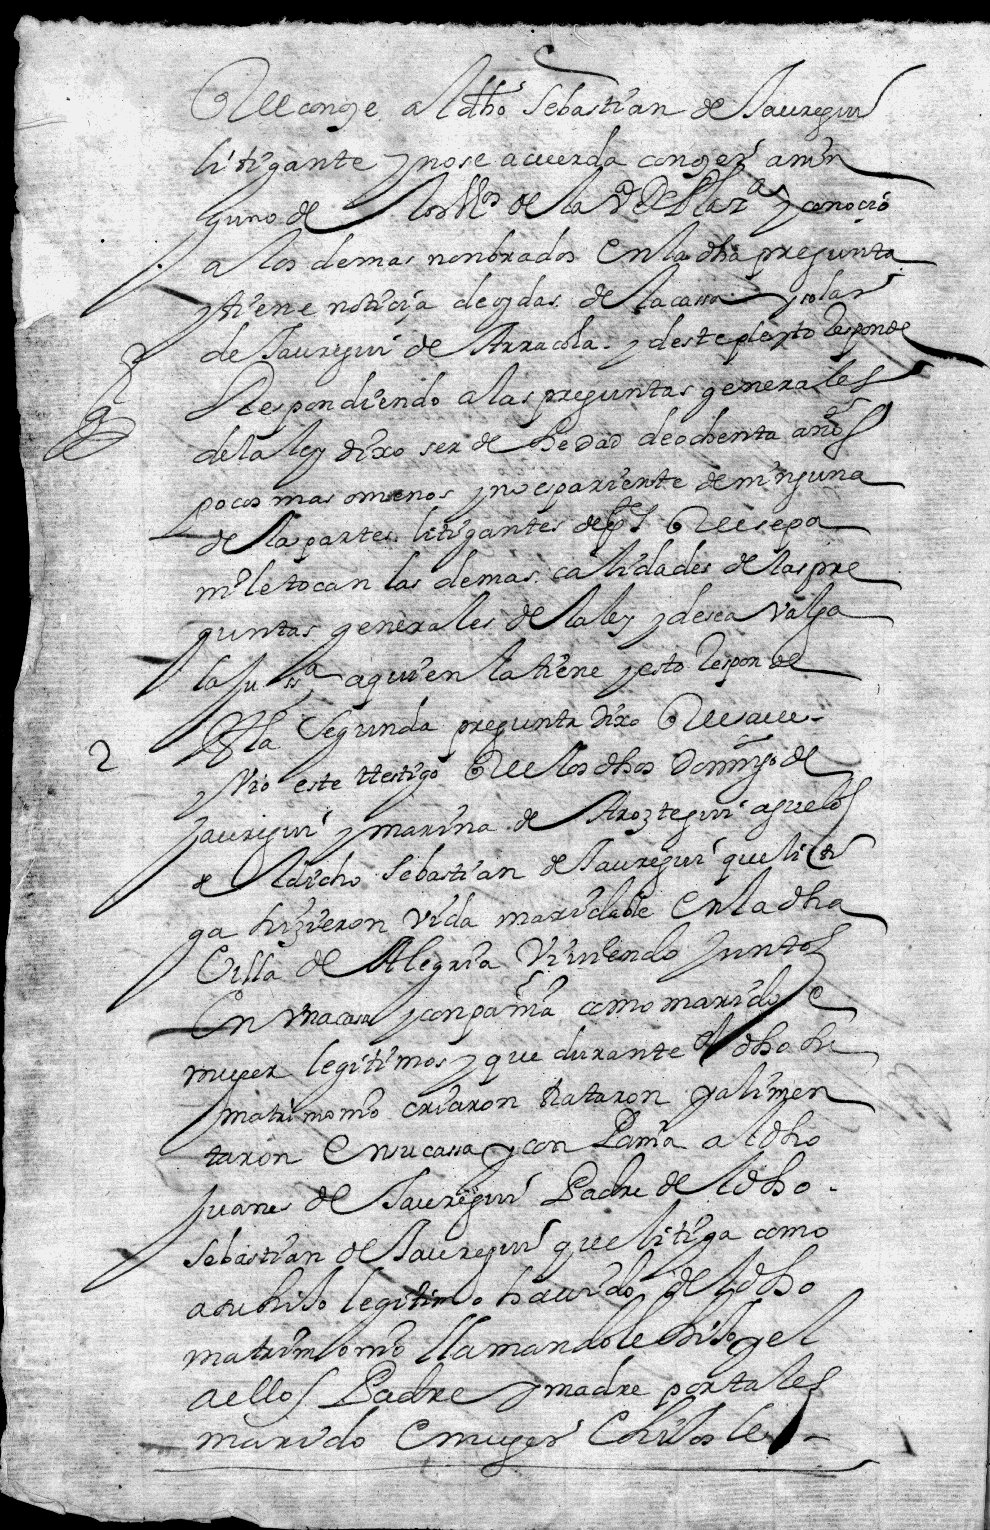 que conoçe al dho Sebastian de Jauregui
litigante y no se acuerda conoçer a nin
guno de los de la y conoçio
a los demas nonbrados en la dha pregunta
y tiene notiçia de oydas de la cassa y solar
de Jauregui de Arracola y deste pleyto responde
Respondiendo a las preguntas generales
de la ley dixo ser de hedad de ochenta años
pocos mas o menos y no es pariente de ninguna
de las partes litigantes que sepa
ni le tocan las demas calidades de las pre
guntas generales de la ley y desea valga
la jusª a quien la tiene y esto responde
2 A la segunda pregunta dixo que save
y vio este testigo que los dhos Domingo de
Jauregui y marina de Aroztegui aguelos
del dicho Sebastian de Jauregui que liti
ga hizieron vida maridable en la dha
Villa de Alegria viviendo juntos
en una casa y conpañia como marido e
muger legitimos y que durante el dho
matrimonio criaron trataron y alimen
taron en su cassa y conpañia al dho
Juanes de Jauregui Padre del dho
Sebastian de Jauregui que litiga como
a su hijo legitimo havido del dho
matrimonio llamandole hijo y el
a ellos Padre y madre por tales
marido e muger e hijo le